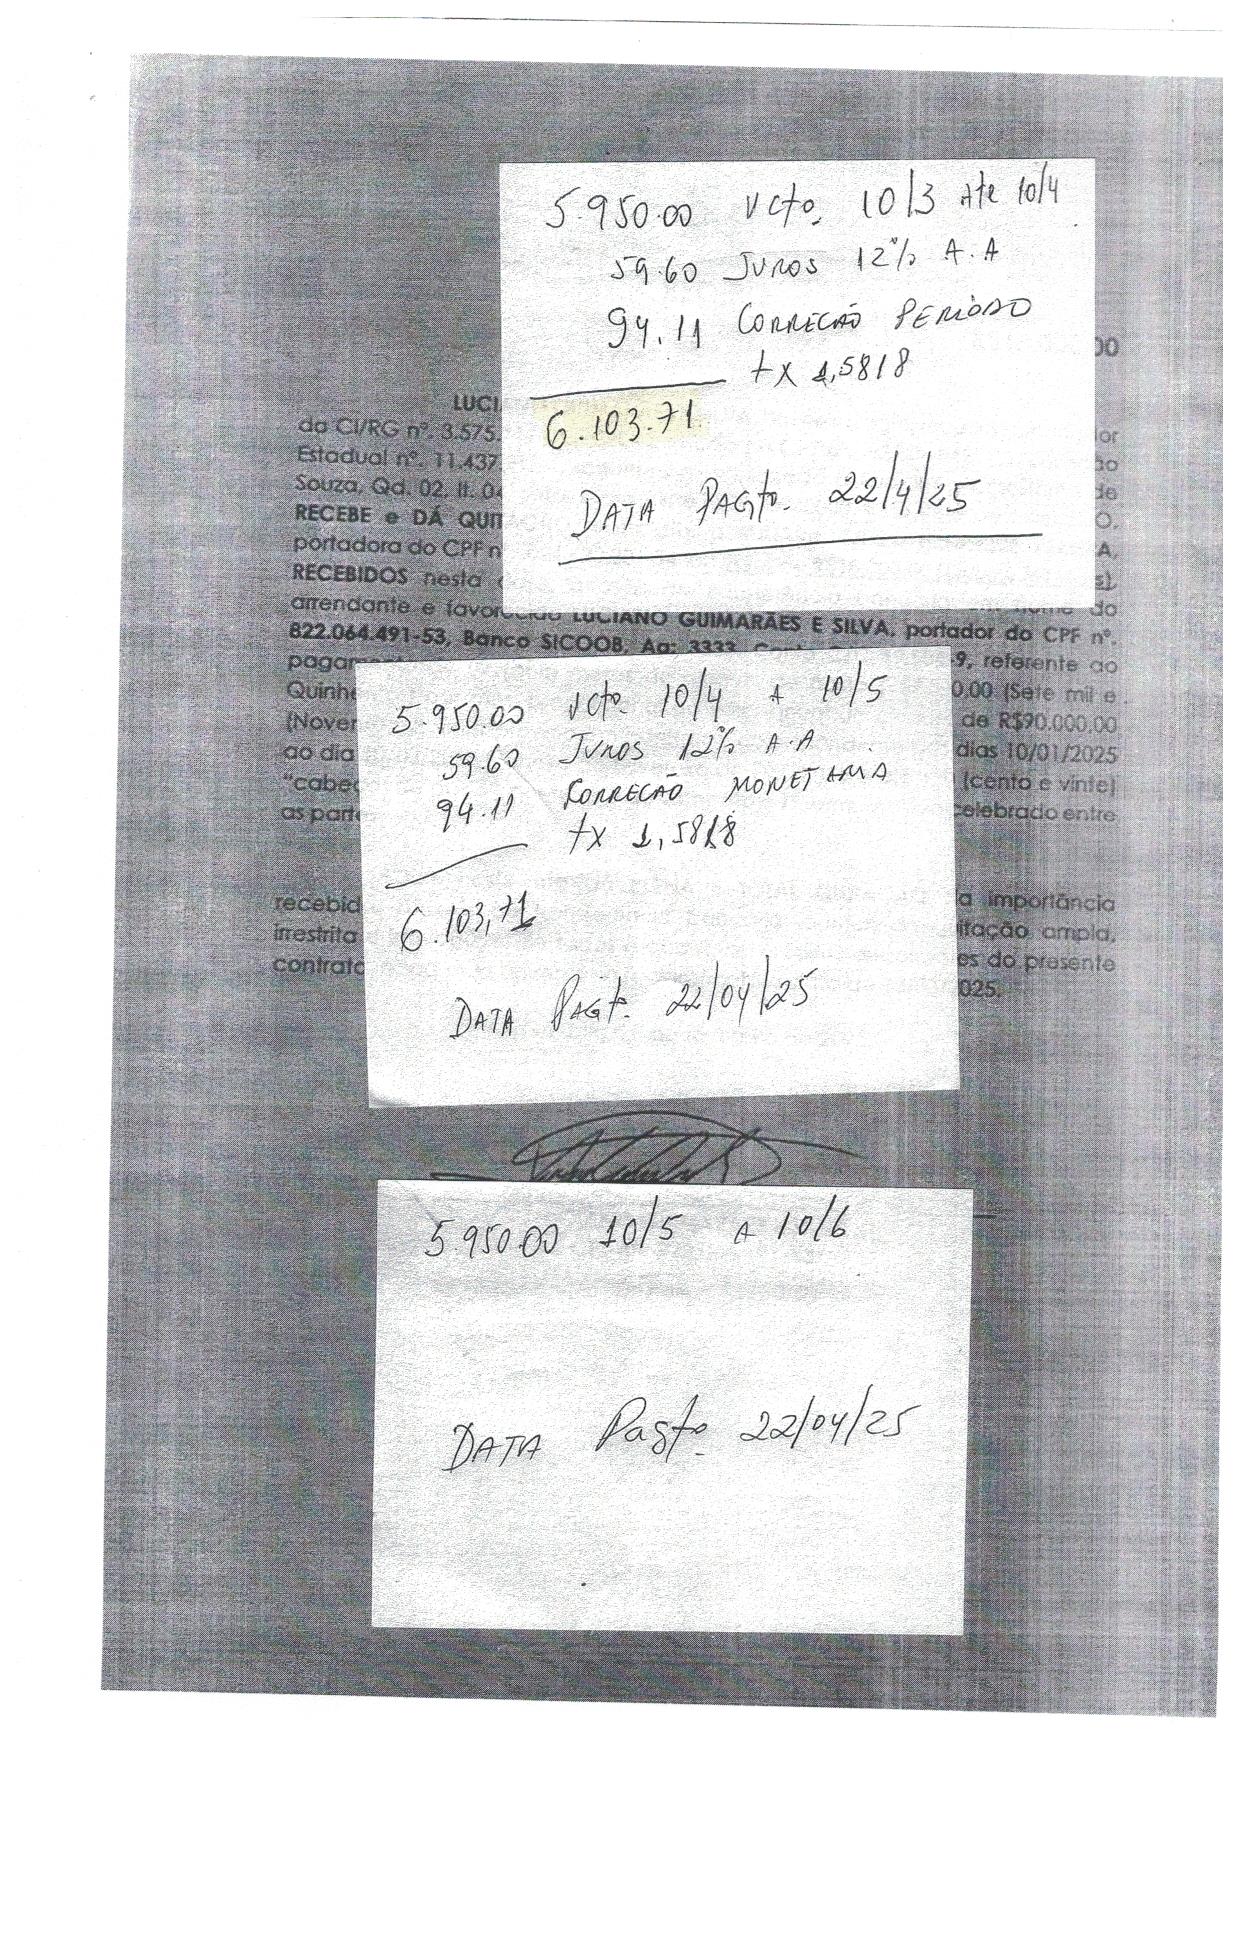 5.950.00 Vcto. 10/3 Ate 10/4
59.60 JUROS 12% A.A
94.11 CORRECÃO PERÍODO
tx 1,5818
6.103.71
DATA PAGto. 22/4/25
00
LUCI
da CI/RG nº. 3.575.
Estadual nº. 11.437
Souza, Qd. 02, lt. 04
RECEBE e DÁ QUIT
portadora do CPF n
RECEBIDOS nesta
arrendante e favorecido LUCIANO GUIMARÃES E SILVA, portador do CPF nº.
822.064.491-53, Banco SICOOB, Ag: 3333, -9, referente ao
pagam
Quinhe 0,00 (Sete mil e
(Nover de R$90.000,00
ao dia dias 10/01/2025
"cabeç (cento e vinte)
as part celebrado entre
5.950.00 Vcto. 10/4 A 10/5
59.60 JUROS 12% A.A
94.11 CORRECÃO MONETARIA
tx 1,5818
6.103,71
DATA PAGt. 22/04/25
recebid a importância
irrestrita itação ampla,
contrato es do presente
025.
5.950.00 10/5 A 10/6
DATA Pagto. 22/04/25